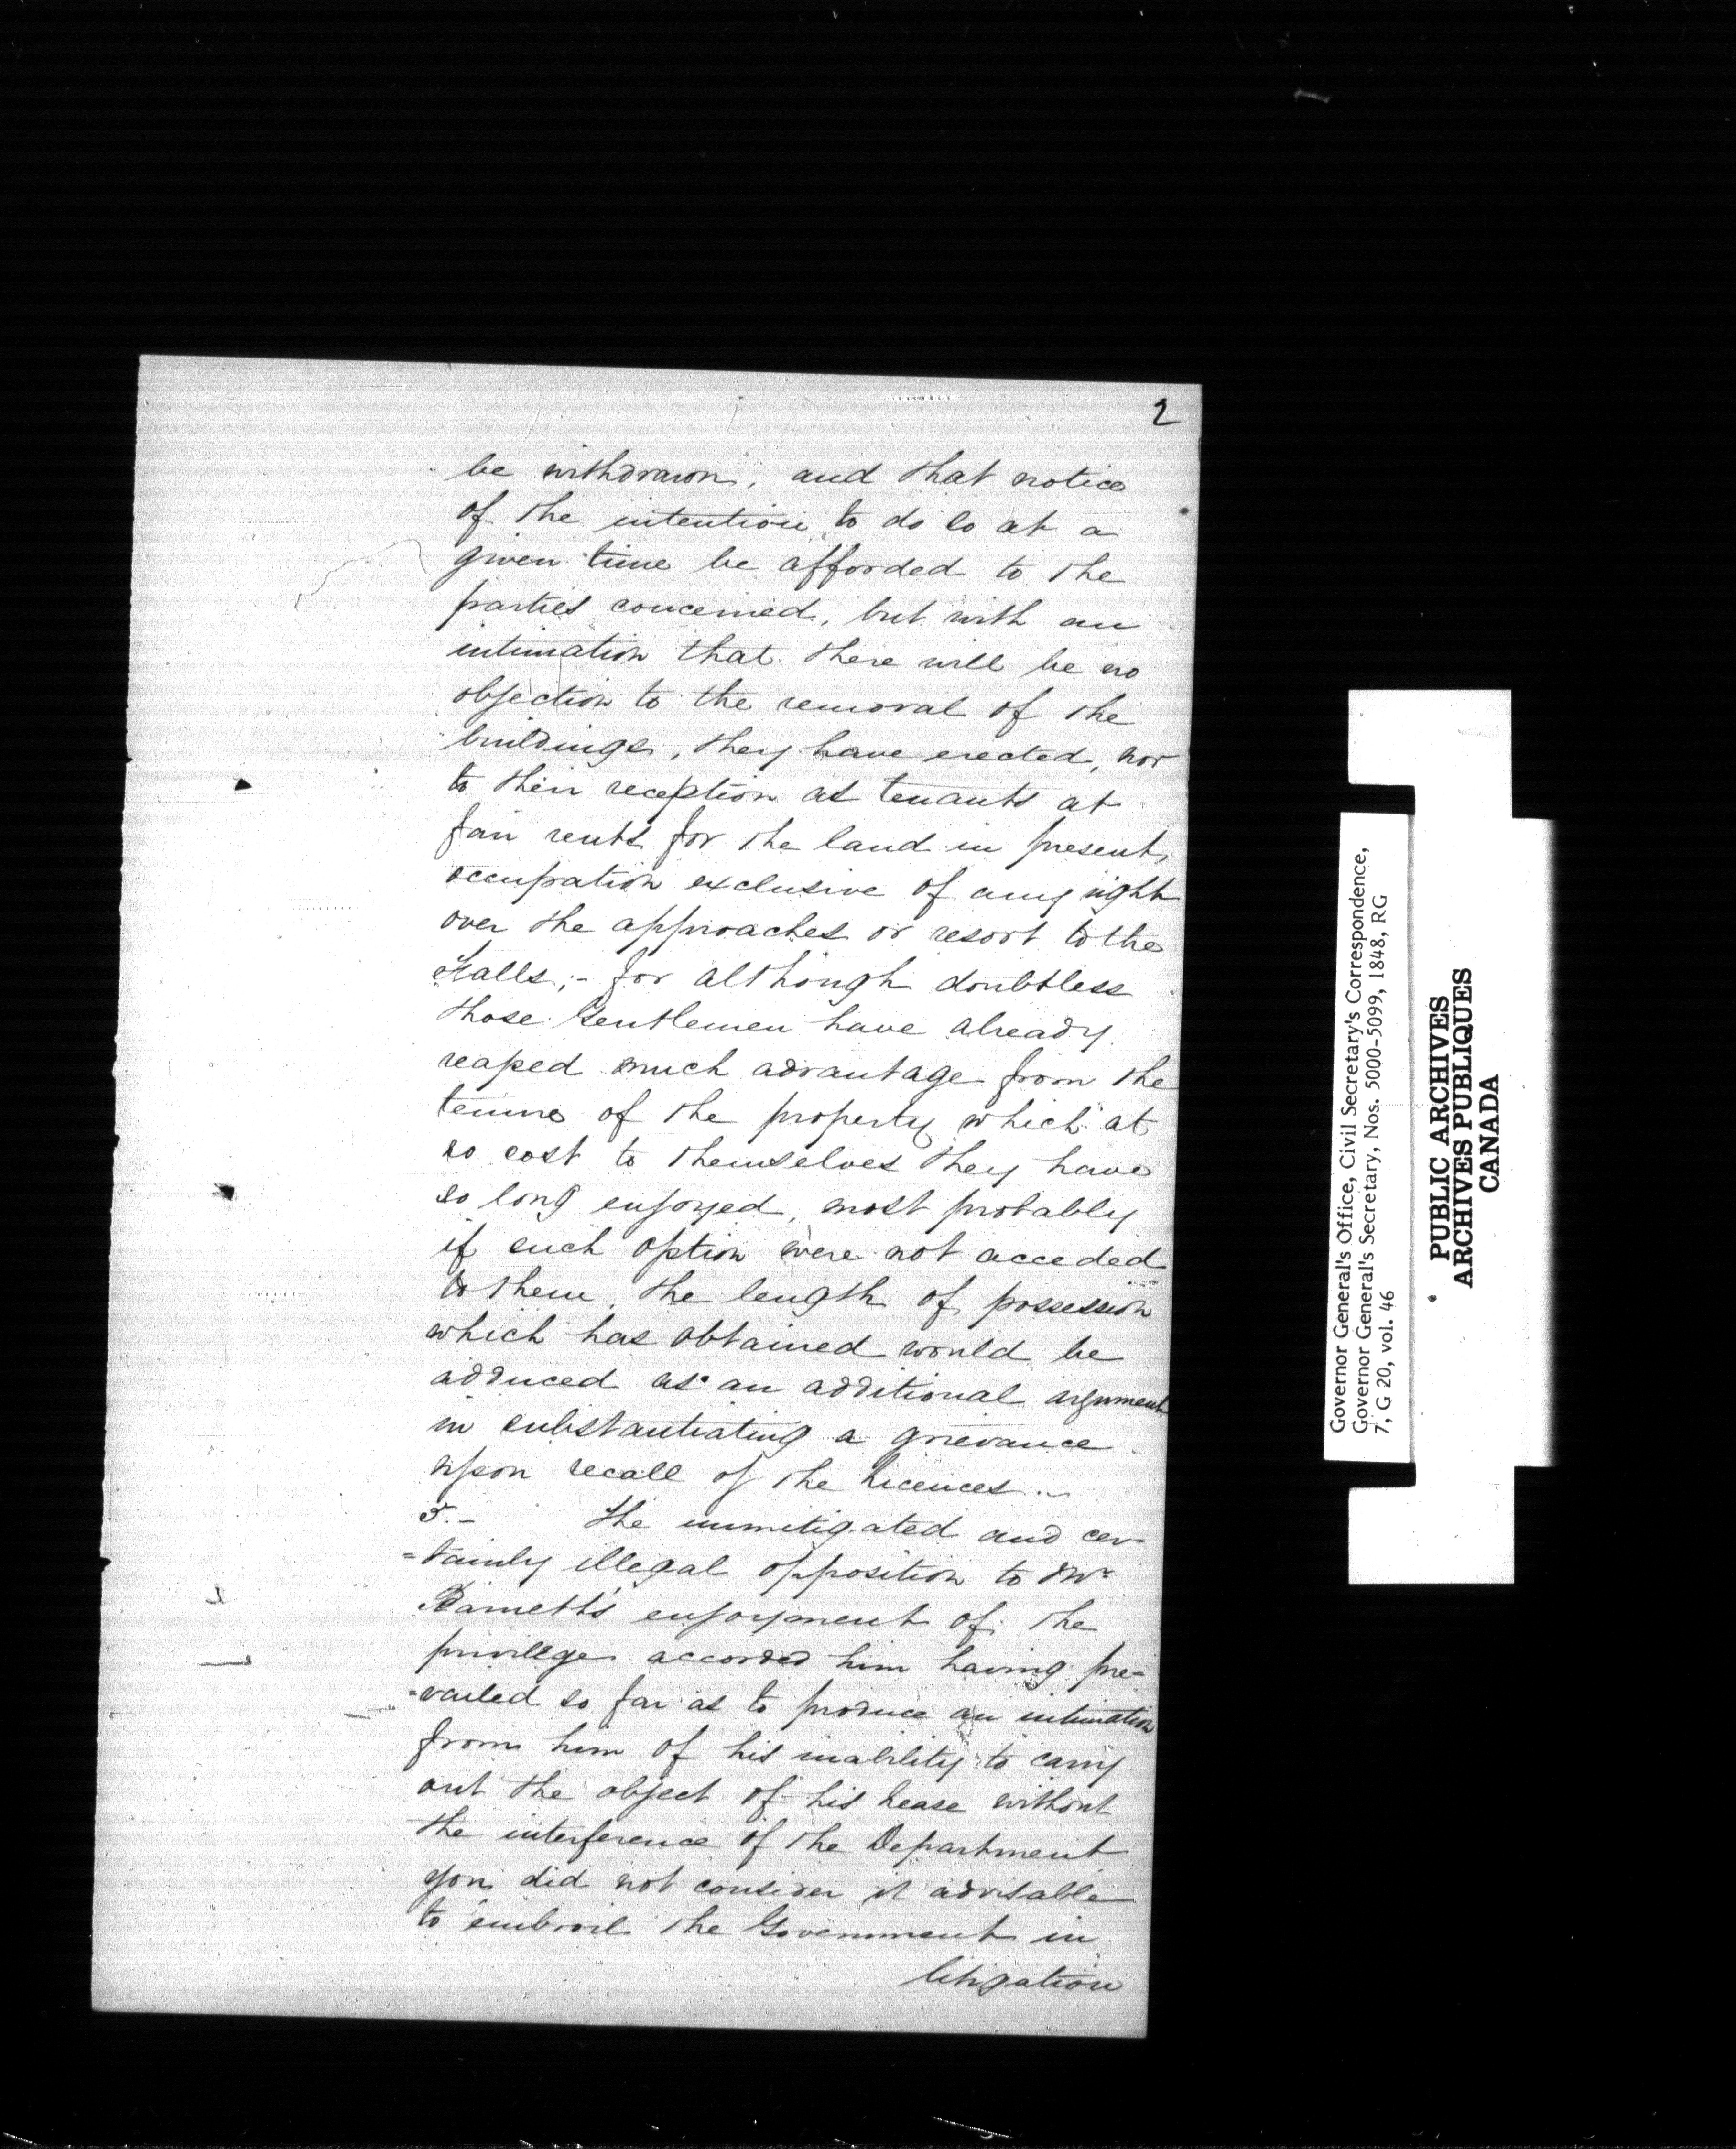 2
be withdrawn, and that notice
of the intention to do so at a
given time be afforded to the
parties concerned, but with an
intimation that there will be no
objection to the removal of the
buildings, they have erected, nor
to their reception as tenants at
fair rents for the land in present
occupation exclusive of any right
over the approaches or resort to the
Falls;- for although doubtless
those Gentlemen have already
reaped much advantage from the
tenure of the property which at
no cost to themselves they have
so long enjoyed, most probably
if such option were not acceded
to them, the length of possession
which has obtained would be
adduced as an additional argument
in substantiating a grievance
upon recall of the Licences.
5.- The unmitigated and cer-
=tainly illegal opposition to Mr
Barnett's enjoyment of the
privilege accorded him having pre=
=vailed so far as to produce an intimation
from him of his inability to carry
out the object of his Lease without
the interference of the Department
you did not consider it advisable
to embroil the Government in
litigation
Governor General's Office, Civil Secretary's Correspondence,
Governor General's Secretary, Nos. 5000-5099, 1848, RG
7, G 20, vol. 46
PUBLIC ARCHIVES
ARCHIVES PUBLIQUES
CANADA